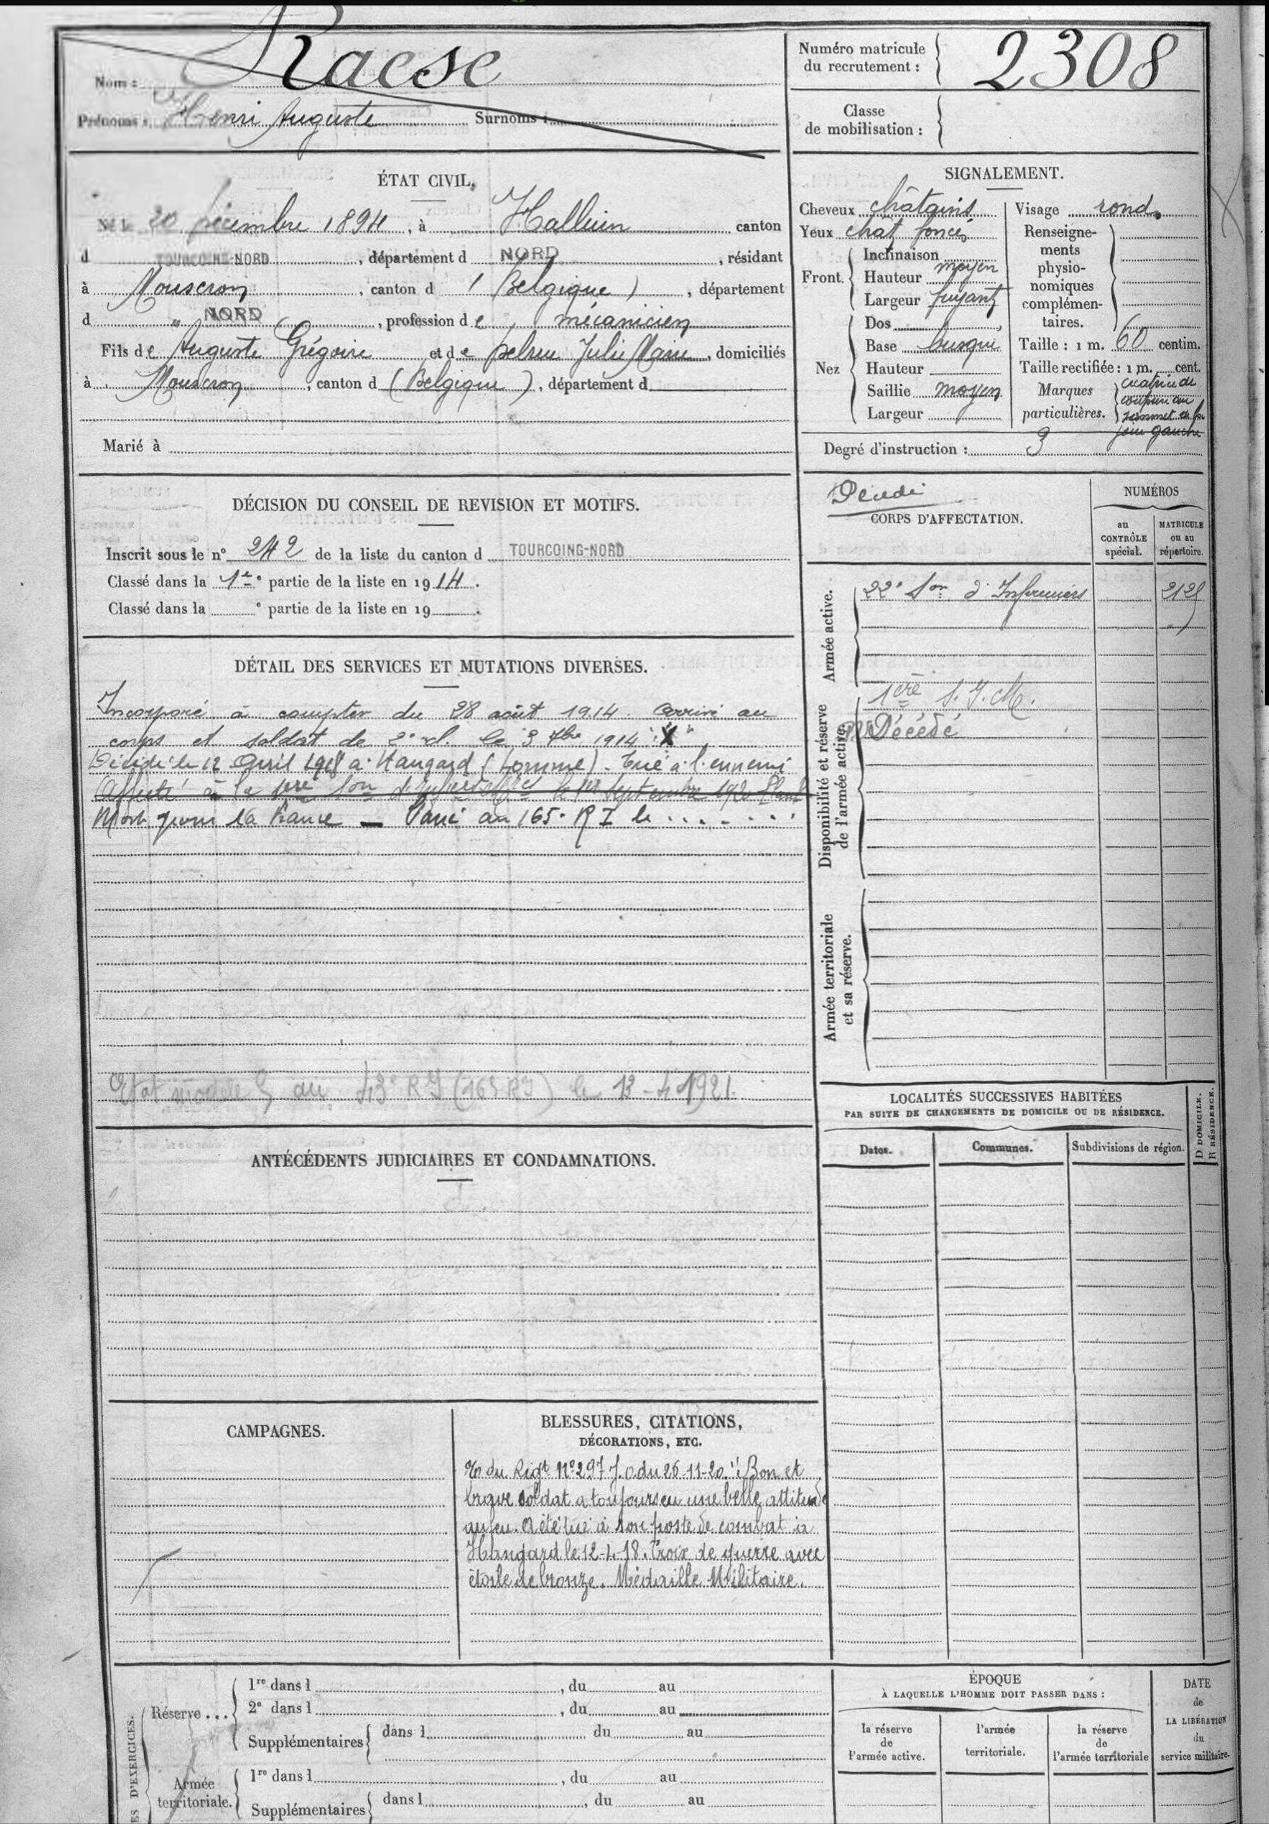 Nom : Raese
Prénoms : Henri Auguste Surnoms :
Numéro matricule du recrutement : 2308
Classe de mobilisation :
ÉTAT CIVIL.
Né le 20 Décembre 1894, à Halluin canton
d TOURCOING-NORD, département d NORD, résidant
à Mouscron, canton d (Belgique), département
d " NORD, profession de mécanicien
Fils de Auguste Grégoire et de Julie Marie, domiciliés
à Mouscron, canton d (Belgique), département d
Marié à
SIGNALEMENT.
Cheveux châtains
Yeux chat foncé
Front. Inclinaison moyen
Hauteur
Largeur fuyant
Nez Dos
Base busqué
Hauteur
Saillie moyen
Largeur
Visage rond
Renseigne-
ments
physio-
nomiques
complémen-
taires.
Taille : 1 m. 60 centim.
Taille rectifiée : 1 m. cent.
Marques particulières. cicatrice de
sommet de la
joue gauche
Degré d'instruction : 3
DÉCISION DU CONSEIL DE REVISION ET MOTIFS.
Inscrit sous le n° 242 de la liste du canton d TOURCOING-NORD
Classé dans la 1re partie de la liste en 1914.
Classé dans la ° partie de la liste en 19 .
Décédé
CORPS D'AFFECTATION.
NUMÉROS
au CONTRÔLE spécial.
MATRICULE ou au répertoire.
Armée active.
22e Son d'Infirmiers 2125
Disponibilité et réserve de l'armée active.
1ère S. I. M.
Décédé
Armée territoriale et sa réserve.
DÉTAIL DES SERVICES ET MUTATIONS DIVERSES.
Incorporé à compter du 28 août 1914. Arrivé au
corps et soldat de 2e cl. le 3 7bre 1914 "X"
Décédé le 12 Avril 1918 à Hangard (Somme). Tué à l'ennemi
Affecté à la 1ère Son d'Infirmiers le 1er septembre 1920
Mort pour la France — Passé au 165e RI le . . . . . .
Etat modèle 5 du 43e RI (165 RI) le 13-4-1921.
LOCALITÉS SUCCESSIVES HABITÉES
PAR SUITE DE CHANGEMENTS DE DOMICILE OU DE RÉSIDENCE.
Dates. Communes. Subdivisions de région. D DOMICILE. R RÉSIDENCE.
ANTÉCÉDENTS JUDICIAIRES ET CONDAMNATIONS.
CAMPAGNES.
BLESSURES, CITATIONS,
DÉCORATIONS, ETC.
du Rigt N°297 J.O. du 26-11-20. "Bon et
brave soldat a toujours eu une belle attitude
au feu. A été tué à son poste de combat à
Hangard le 12-4-18. Croix de guerre avec
étoile de bronze. Médaille Militaire.
ES D'EXERCICES.
Réserve ... 1re dans l , du au
2e dans l , du au
Supplémentaires dans l du au
Armée territoriale. 1re dans l , du au
Supplémentaires dans l , du au
ÉPOQUE
À LAQUELLE L'HOMME DOIT PASSER DANS :
la réserve de l'armée active.
l'armée territoriale.
la réserve de l'armée territoriale
DATE
de
LA LIBÉRATION
du
service militaire.